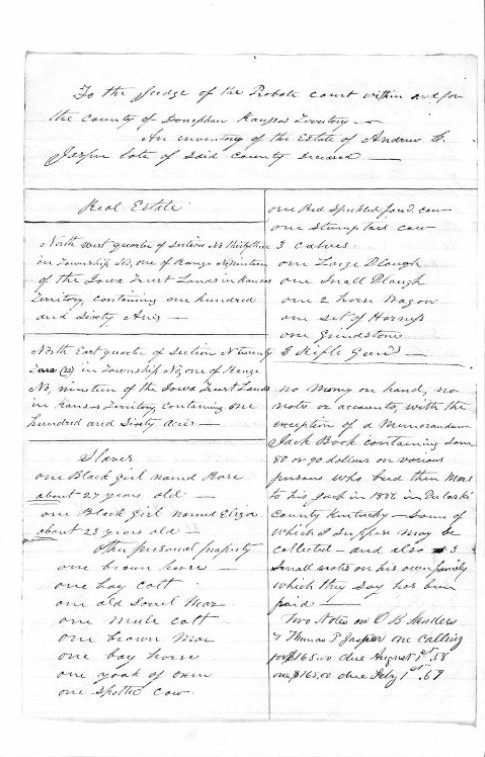 To the Judge of the Probate court within and for
the County of Donephan Kansas Territory —
An inventory of the Estate of Andrew C.
Jasper late of said County Deceased —
Real Estate
North West quarter of Section No
in Township No, one of Range No nineteen
of the Iowa Trust Lands in Kansas
Territory, Containing one hundred
and Sixty Acres —
North East quarter of Section N twenty
(22) in Township No, one of Range
No, nineteen of the Iowa Trust Lands
in Kansas Territory Containing one
hundred and Sixty acres —
Slaves
one Black girl named Rose
about 27 years old —
one Black Girl named Eliza
about 23 years old —
Other personal property
one brown horse —
one bay colt
one old Sorrel Mare
one mule colt
one brown Mare
one bay horse
one yoak of oxen
one Spotted Cow
one Red Speckled cow
one Stump tail cow
3 calves
one Large Plough
one Small Plough
one 2 horse Wagon
one set of Harness
one Grindstone
2 Rifle Guns —
no money on hand, no
note or accounts, with the
exception of a Memorandum
Jack Book containing some
80 or 90 dollars on various
persons who bred their Mares
to his Jack in 1856 in Pulaski
County Kentucky — Some of
which I suppose may be
collected — and also 3
Small notes on his own family
which they say has been
paid —
Two Notes on O B Sanders
& Thomas T Jasper one calling
for $165.00 due August 1st .58
one $165.00 due July 1st .67